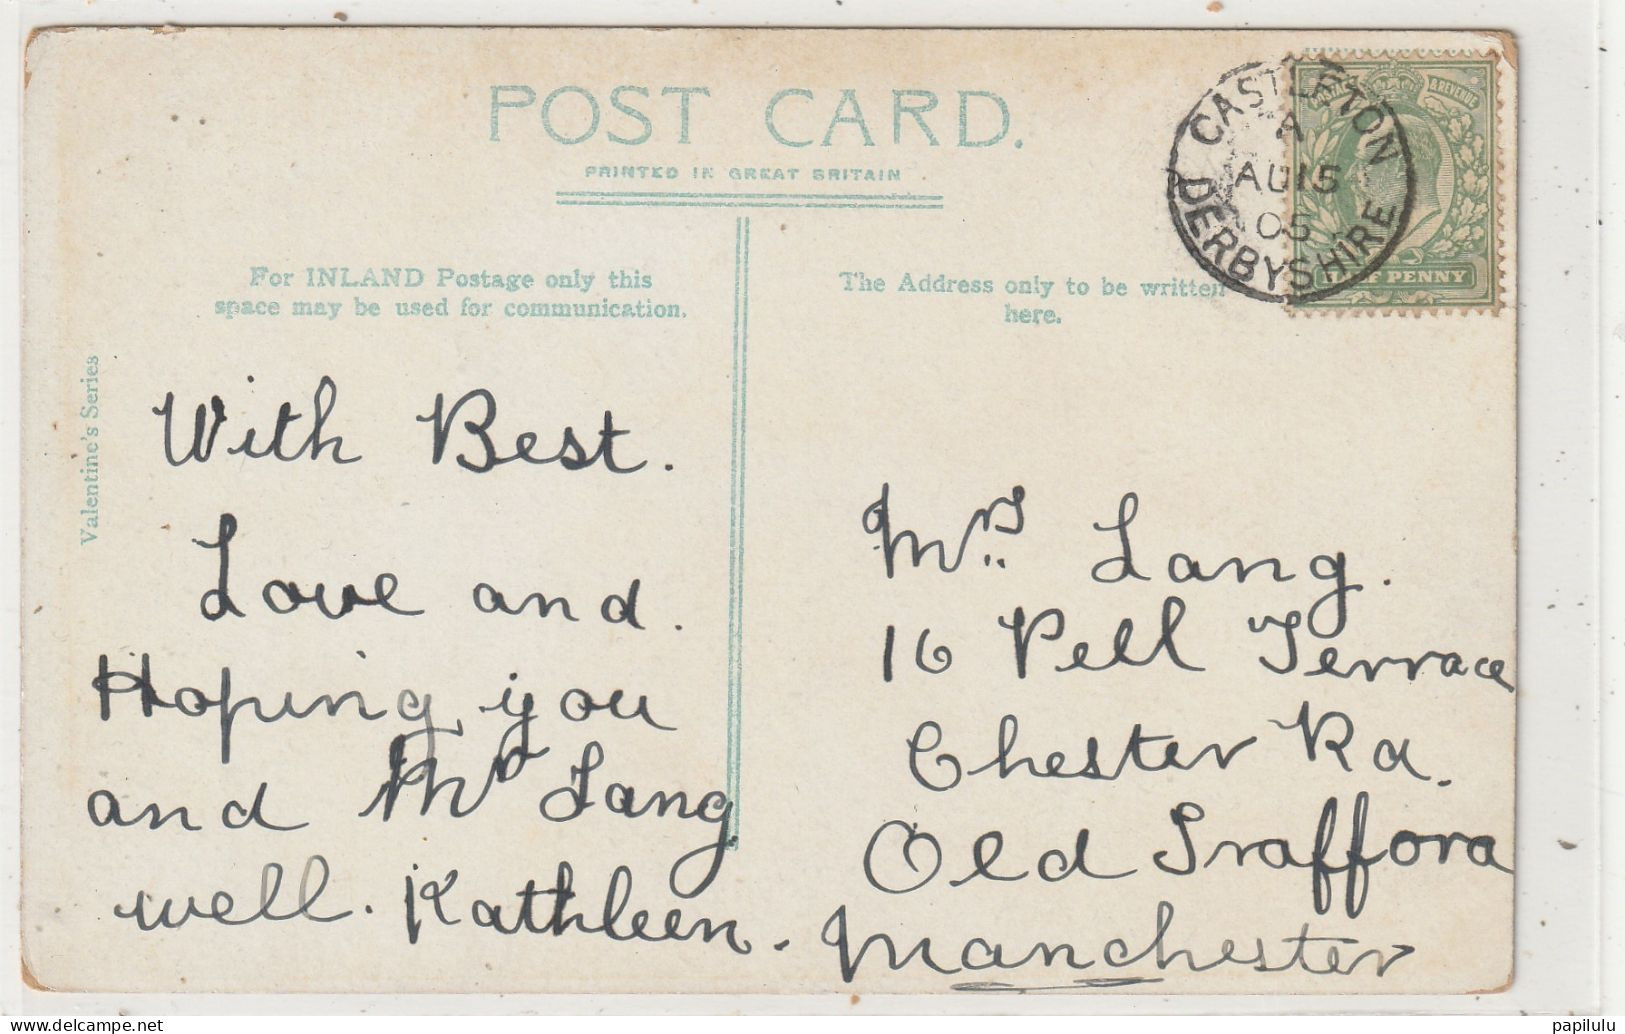 POST CARD.
PRINTED IN GREAT BRITAIN
CASTLETON
A
AU 15
05
DERBYSHIRE
POSTAGE & REVENUE
HALF PENNY
For INLAND Postage only this
space may be used for communication.
The Address only to be written
here.
Valentine's Series
With Best.
Love and.
Hoping you
and Mr Lang
well. Kathleen.
Mrs. Lang.
16 Pell Terrace
Chester Rd.
Old Trafford
Manchester
papilulu